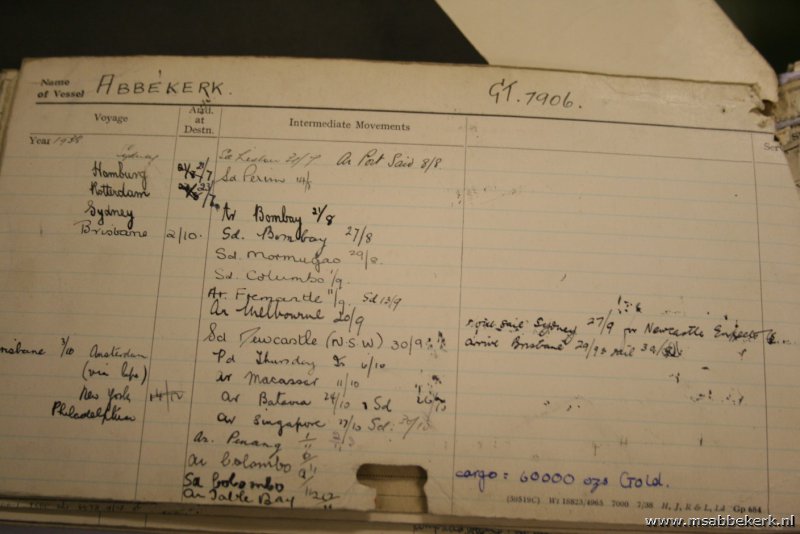 Name of Vessel ABBEKERK. GT. 7906.
Voyage
Arrd. at Destn.
Intermediate Movements
Year 1938
Sydney
Hamburg
Rotterdam
Sydney
Brisbane 2/10.
Ar Port Said 8/8.
Sd Perim 14/8
Ar Bombay 21/8
Sd. Bombay 27/8
Sd. Mormugao 29/8.
Sd. Columbo 1/9.
Ar. Fremantle 11/9. Sd 13/9
Ar Melbourne 20/9
Sd Newcastle (N.S.W) 30/9
sail Sydney 27/9 for Newcastle Expects
arrive Brisbane 29/9 & sail
Pd Thursday Is 6/10
3/10 Amsterdam
(via Cape)
New York
Philadelphia
ar Macassar 11/10
ar Batavia 24/10 Sd
ar Singapore 27/10 Sd. 30/10
Ar. Penang 1/11
ar Colombo
Sd Colombo
ar Table Bay 20/11
cargo: 60000 ozs Gold.
(30519C) Wt 18823/4965 7000 7/38 H, J, R & L, Ld Gp 684
www.msabbekerk.nl